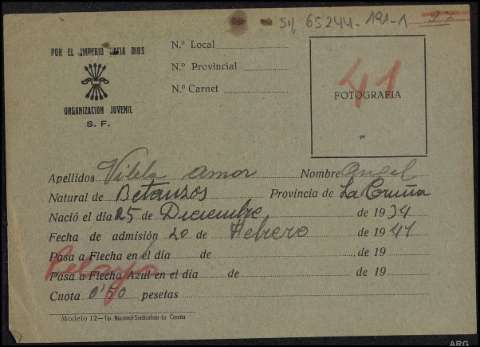 SH 65244-191-1
POR EL IMPERIO HACIA DIOS
ORGANIZACIÓN JUVENIL
S. F.
N.º Local
N.º Provincial
N.º Carnet
41
FOTOGRAFIA
Apellidos Vilela Amor Nombre Angel
Natural de Betanzos Provincia de La Coruña
Nació el día 25 de Diciembre de 1934
Fecha de admisión 20 de Febrero de 1941
Pasa a Flecha en el día de de 19
Pelayo
Pasa a Flecha Azul en el día de de 19
Cuota 0'50 pesetas
Modelo 12—Tip. Nacional-Sindicalista La Coruña
ARG